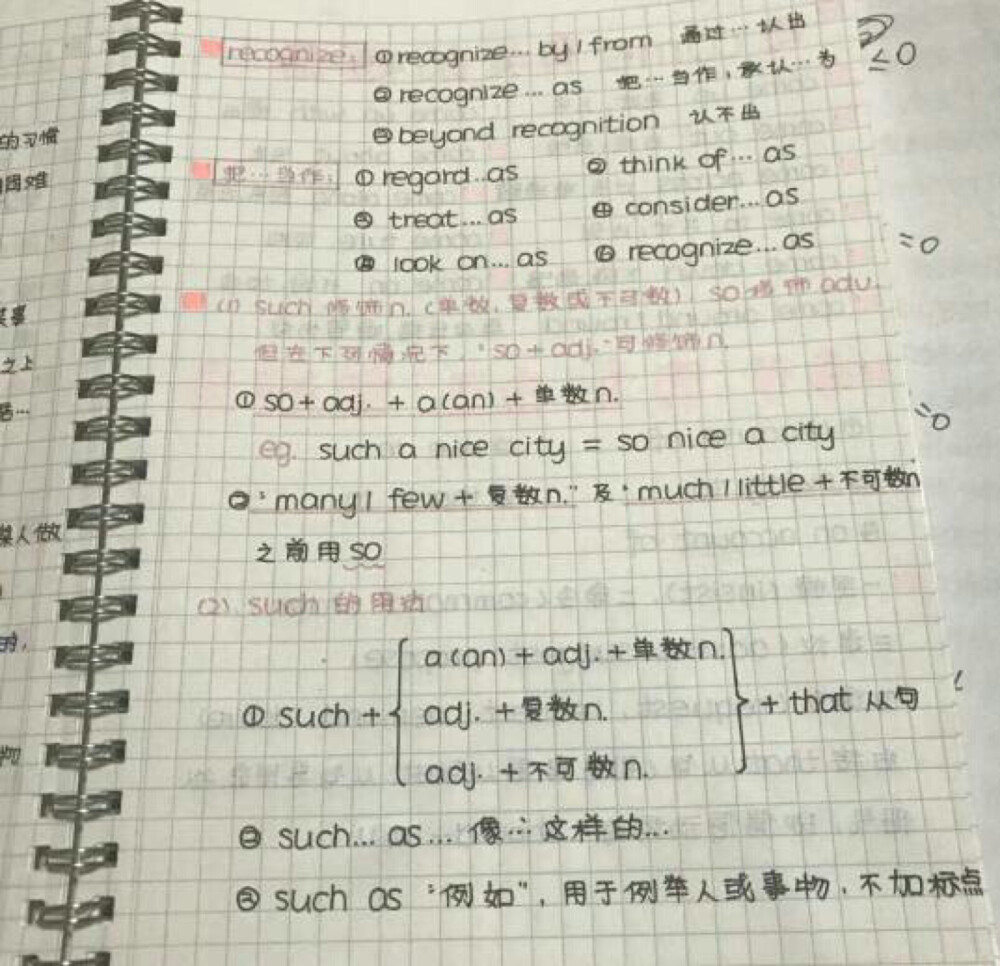 recognize: ① recognize… by / from 通过…认出
② recognize … as 把…当作,承认…为
③ beyond recognition 认不出
把…当作: ① regard…as ② think of … as
③ treat … as ④ consider…as
⑤ look on … as ⑥ recognize … as
(1) such 修饰n. (单数,复数或不可数) so 修饰 adv.
但在下列情况下,"so + adj."可修饰n.
① so + adj. + a(an) + 单数n.
eg. such a nice city = so nice a city
② "many / few + 复数n." 及 "much / little + 不可数n
之前用so
(2) such 的用法
a(an) + adj. + 单数n.
① such + { adj. + 复数n. } + that 从句
adj. + 不可数n.
② such … as … 像…这样的…
③ such as "例如", 用于例举人或事物, 不加标点
的习惯
困难
之上
某人做
的,
≤0
=0
=0